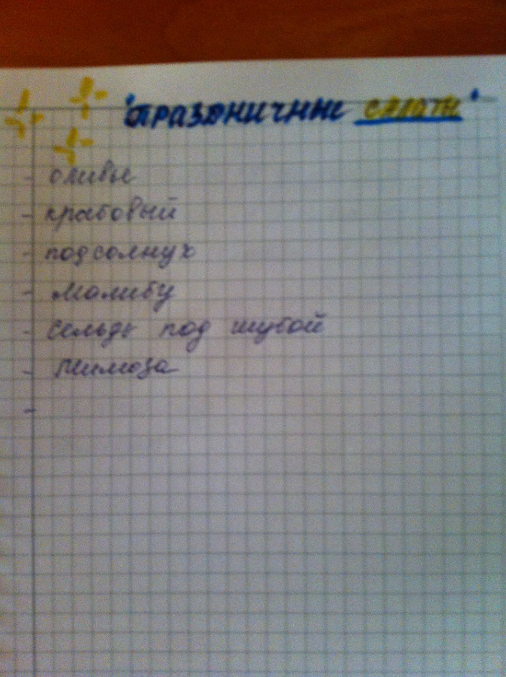 "Праздничные салаты"
- оливье
- крабовый
- подсолнух
- Малибу
- Сельдь под шубой
- Мимоза
-